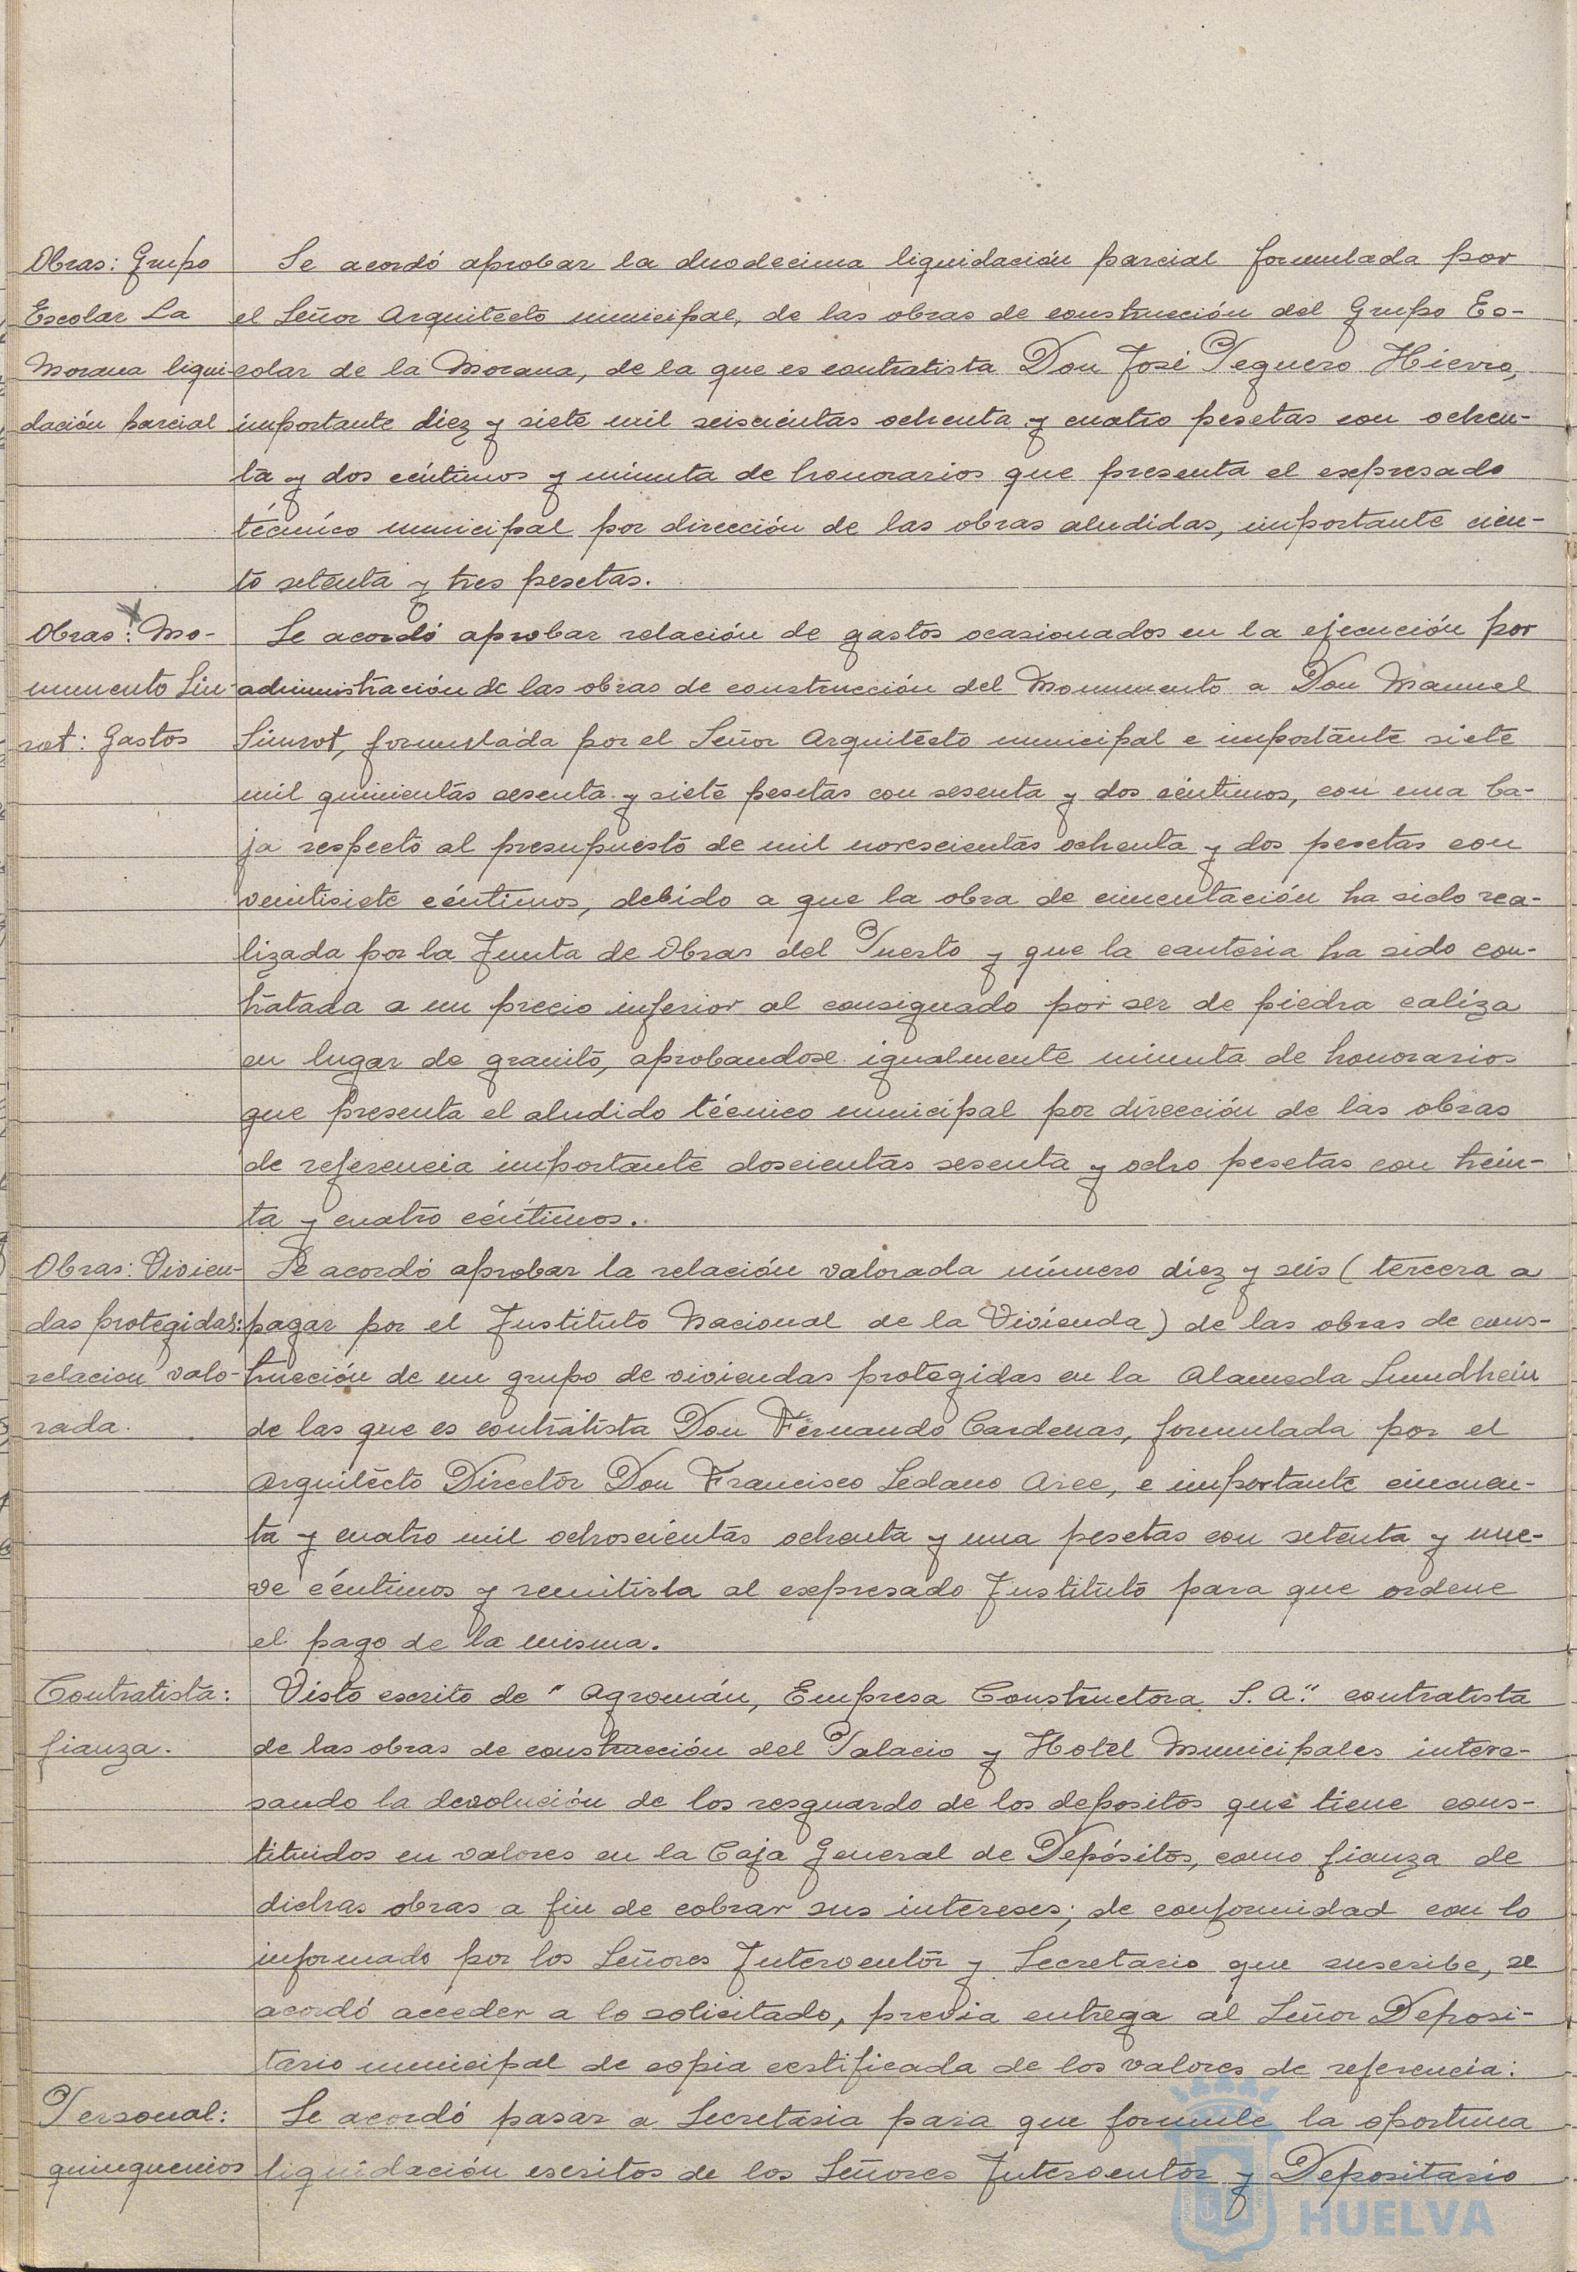 Obras: Grupo
Escolar La
Morana liqui-
dación parcial
Se acordó aprobar la duodecima liquidación parcial formulada por
el Señor Arquitecto municipal, de las obras de construcción del Grupo Es-
colar de la Morana, de la que es contratista Don José Peguero Hierro,
importante diez y siete mil seiscientas ochenta y cuatro pesetas con ochen-
ta y dos céntimos y minuta de honorarios que presenta el expresado
técnico municipal por dirección de las obras aludidas, importante cien-
to setenta y tres pesetas.
Obras: Mo-
numento Siu-
rot: Gastos
Se acordó aprobar relación de gastos ocasionados en la ejecución por
administración de las obras de construcción del Monumento a Don Manuel
Siurot, formulada por el Señor Arquitecto municipal e importante siete
mil quinientas sesenta y siete pesetas con sesenta y dos céntimos, con una ba-
ja respecto al presupuesto de mil novescientas ochenta y dos pesetas con
veintisiete céntimos, debido a que la obra de cimentación ha sido rea-
lizada por la Junta de Obras del Puerto y que la canteria ha sido con-
tratada a un precio inferior al consignado por ser de piedra caliza
en lugar de granito, aprobandose igualmente minuta de honorarios
que presenta el aludido técnico municipal por dirección de las obras
de referencia importante doscientas sesenta y ocho pesetas con trein-
ta y cuatro céntimos.
Obras: Vivien-
das protegidas:
relacion valo-
rada.
Se acordó aprobar la relación valorada número diez y seis (tercera a
pagar por el Instituto Nacional de la Vivienda) de las obras de cons-
trucción de un grupo de viviendas protegidas en la Alameda Sundhein
de las que es contratista Don Fernando Cardenas, formulada por el
Arquitecto Director Don Francisco Sedano Arce, e importante cincuen-
ta y cuatro mil ochoscientas ochenta y una pesetas con setenta y nue-
ve céntimos y remitirla al expresado Instituto para que ordene
el pago de la misma.
Contratista:
fianza.
Visto escrito de "Agromán, Empresa Constructora S. A." contratista
de las obras de construcción del Palacio y Hotel Municipales intere-
sando la devolución de los resguardo de los depositos que tiene cons-
tituidos en valores en la Caja General de Depósitos, como fianza de
dichas obras a fin de cobrar sus intereses; de conformidad con lo
informado por los Señores Interventor y Secretario que suscribe, se
acordó acceder a lo solicitado, previa entrega al Señor Deposi-
tario municipal de copia certificada de los valores de referencia.
Personal:
quinquenios
Se acordó pasar a Secretaria para que formule la oportuna
liquidación escritos de los Señores Interventor y Depositario
HUELVA